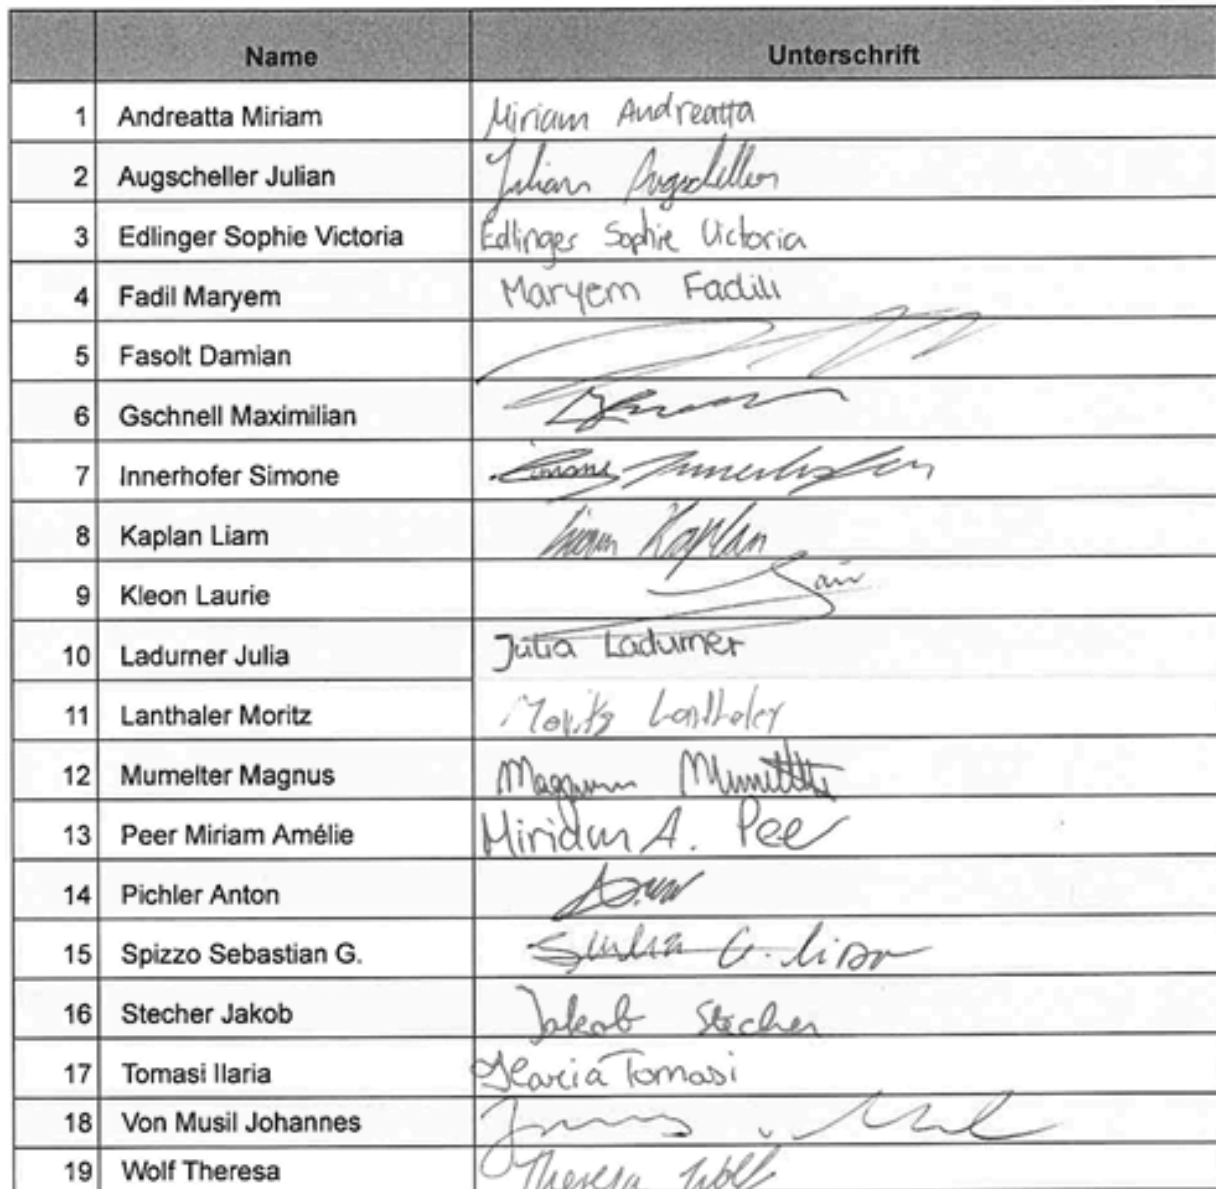 Name Unterschrift
1 Andreatta Miriam Miriam Andreatta
2 Augscheller Julian Julian Augscheller
3 Edlinger Sophie Victoria Edlinger Sophie Victoria
4 Fadil Maryem Maryem Fadili
5 Fasolt Damian
6 Gschnell Maximilian
7 Innerhofer Simone Simone Innerhofer
8 Kaplan Liam Liam Kaplan
9 Kleon Laurie
10 Ladurner Julia Julia Ladurner
11 Lanthaler Moritz Moritz Lanthaler
12 Mumelter Magnus Magnus
13 Peer Miriam Amélie Miriam A. Peer
14 Pichler Anton
15 Spizzo Sebastian G. G.
16 Stecher Jakob Jakob Stecher
17 Tomasi Ilaria Ilaria Tomasi
18 Von Musil Johannes
19 Wolf Theresa Theresa Wolf